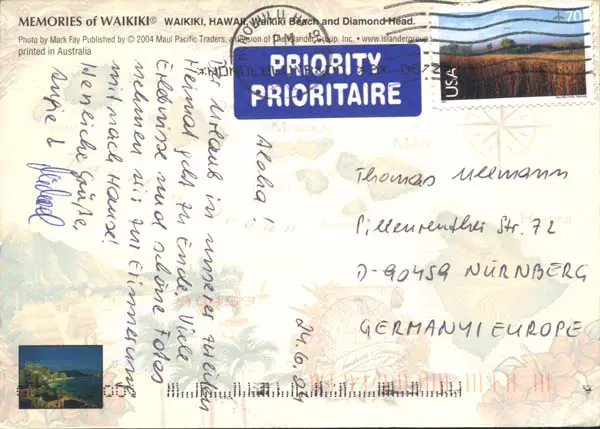 MEMORIES of WAIKIKI® WAIKIKI, HAWAII, Waikiki Beach and Diamond Head.
Photo by Mark Fay Published by © 2004 Maui Pacific Traders, a division of The Islander Group, Inc. • www.islandergroup
printed in Australia
HONOLULU
PM
PRIORITY
PRIORITAIRE
USA
70
Aloha!
Der Urlaub in unserer zweiten
Heimat geht zu Ende. Viele
Erlebnisse und schöne Fotos
nehmen wir zur Erinnerung
mit nach Hause!
Herzliche Grüße,
Antje &
24.6.04
Thomas Ullmann
Pillenreuther Str. 72
D-90459 NÜRNBERG
GERMANY / EUROPE